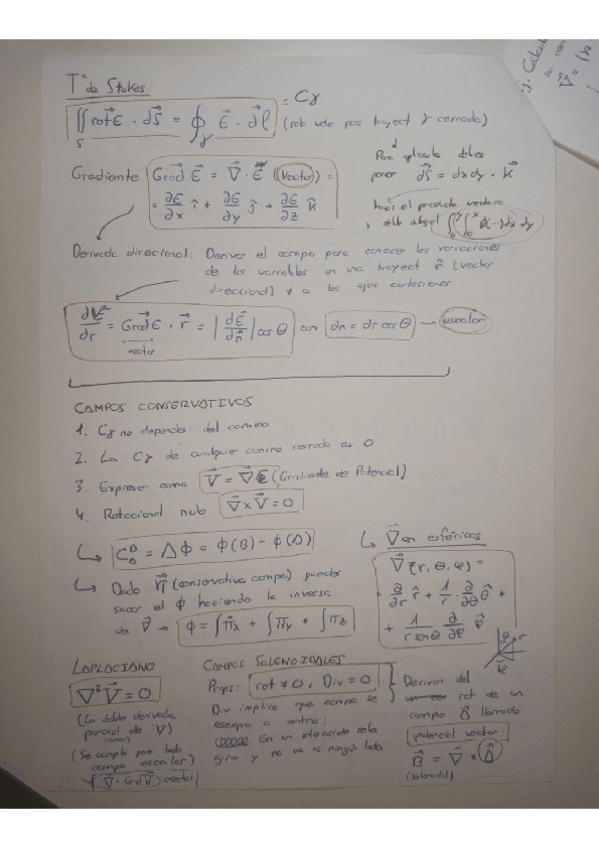 Tª de Stokes
∬_S rot E⃗ · dS⃗ = ∮_γ E⃗ · dl⃗ = Cγ (solo vale para trayect γ cerrada)
Para calcularlo debes
poner dS⃗ = dxdy · k⃗
hacer el producto vectorial
Gradiente Grad E⃗ = ∇⃗ · E⃗ (Vector) =
= ∂E/∂x î + ∂E/∂y ĵ + ∂E/∂z k̂
Derivada direccional: Derivar el campo para conocer las variaciones
de las variables en una trayect n̂ (vector
direccional) ≠ a los ejes cartesianos.
dE/dr = Grad E · r⃗ = |dE⃗/dn⃗| cos θ con dn = dr cos θ → escalar
vector
CAMPOS CONSERVATIVOS
1. Cγ no depende del camino
2. La Cγ de cualquier camino cerrado es 0
3. Expresar como V⃗ = ∇⃗ϵ (Gradiente de Potencial)
4. Rotacional nulo ∇⃗ x V⃗ = 0
↳ C_A^B = Δϕ = ϕ(B) - ϕ(A)
↳ Dado (conservativo campo) puedes
sacar el ϕ haciendo la inversa
de ∇⃗ → ϕ = ∫πx + ∫πy + ∫πz
↳ ∇⃗ en esféricas
∇⃗(r, θ, φ) =
= ∂/∂r r̂ + 1/r · ∂/∂θ θ̂ +
+ 1/(r senθ) ∂/∂φ φ̂
LAPLACIANO
∇²V⃗ = 0
(La doble derivada
parcial de V⃗)
(Se cumple para todo
campo escalar)
(∇⃗ · Grad V) escalar
CAMPOS SOLENOIDALES
Props: rot ≠ 0, Div = 0
Div implica que campo se
escapa o entra:
En un solenoide rota
gira y no va a ningún lado
Derivan del
rot de un
campo B⃗ llamado
potencial vector:
B⃗ = ∇⃗ x A⃗
(solenoidal)